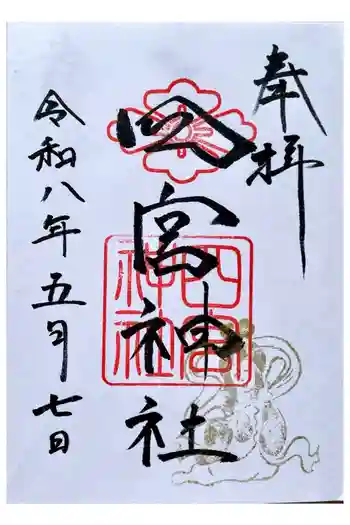 奉拝
四宮神社
四宮
神社
令和八年五月七日